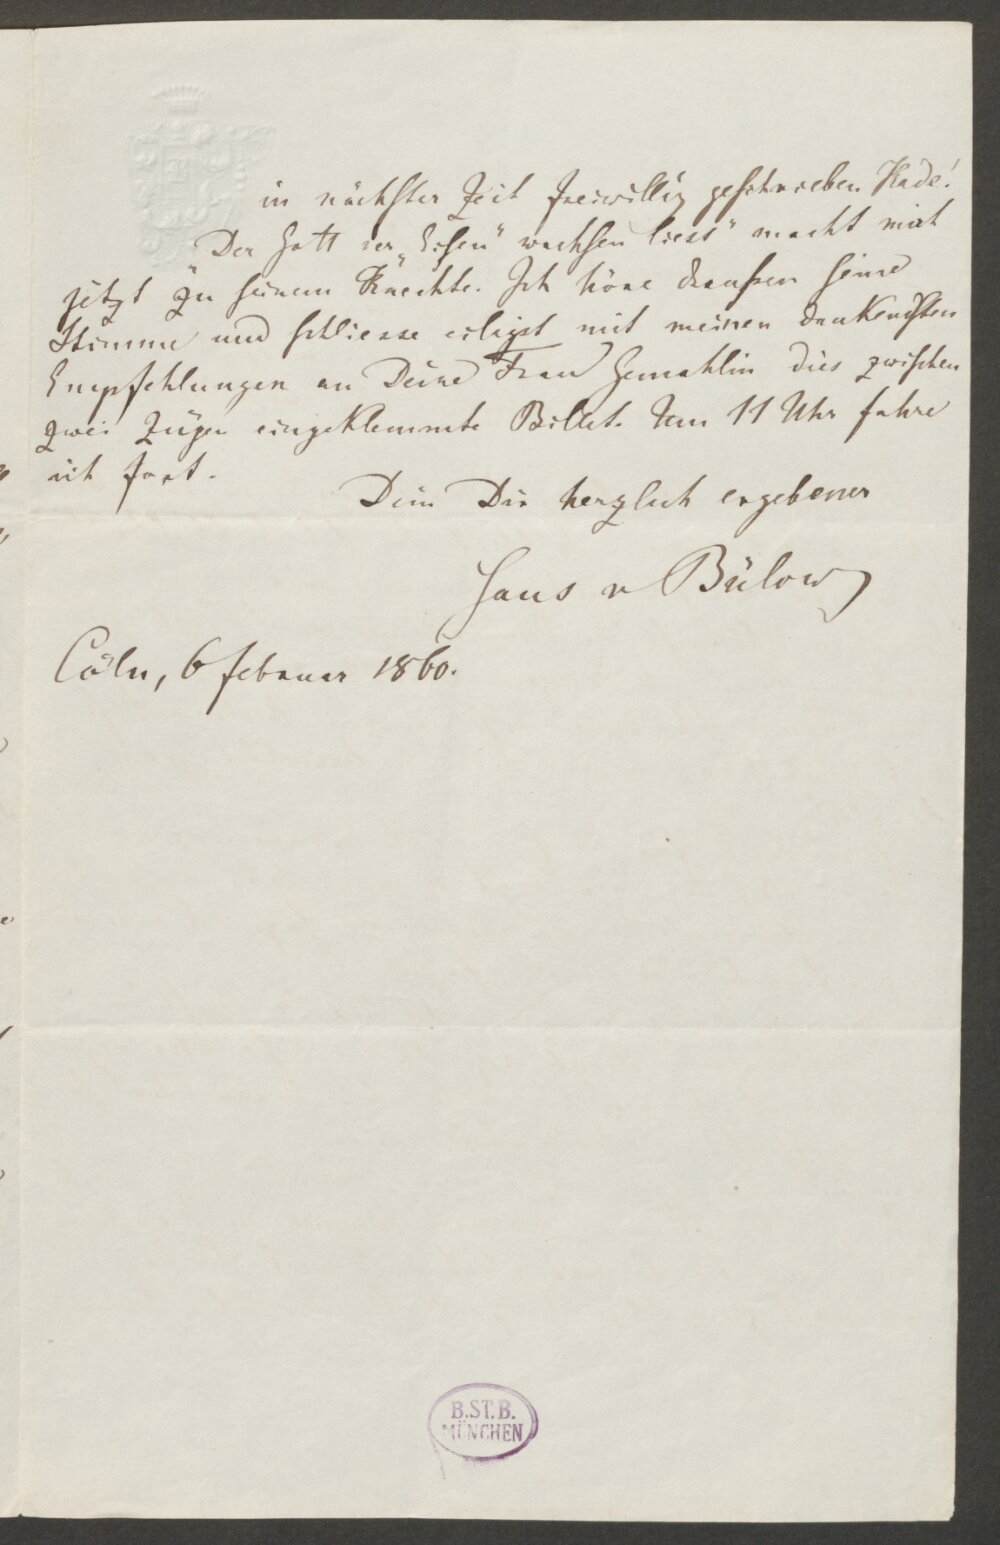 in nächster Zeit freiwillig geschrieben habe!
„Der Gott der „Eisen" wachsen liess" macht mich
jetzt zu seinem Knechte. Ich höre draußen seine
Stimme und schliesse eiligst mit meinen dankendsten
Empfehlungen an Deine Frau Gemahlin dies zwischen
zwei Zügen eingeklemmte Billet. Um 11 Uhr fahre
ich fort.
Dein Dir herzlich ergebener
Hans v Bülow
Cöln, 6 februar 1860.
B.ST.B.
MÜNCHEN